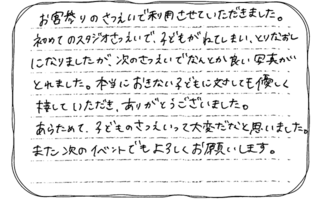 お宮参りのさつえいで利用させていただきました。
初めてのスタジオさつえいで、子どもがねてしまい、とりなおし
になりましたが、次のさつえいでなんとか良い写真が
とれました。本当におきない子どもに対しても優しく
接していただき、ありがとうございました。
あらためて、子どものさつえいって大変だなと思いました。
また次のイベントでもよろしくお願いします。